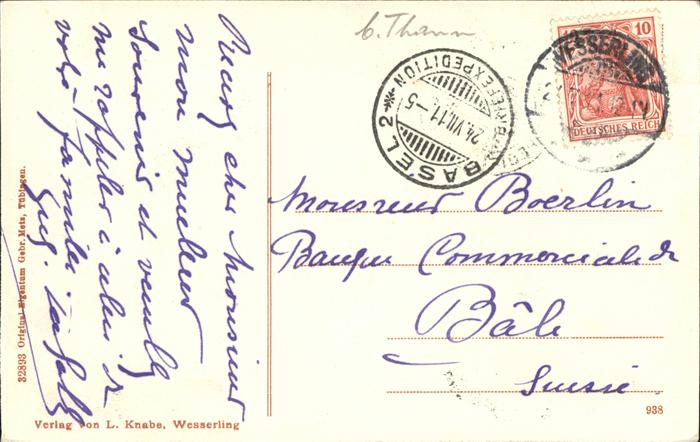 b. Thann
10
WESSERLING
DEUTSCHES REICH
BASEL 2
24.VII.11.-5
BRIEFEXPEDITION
Monsieur Boerlin
Banque Commerciale de
Bâle
Suisse
Recevez cher Monsieur
mon meilleur
Souvenir et veuillez
me rappeler à celui de
votre famille
Eug.
32893 Original Eigentum Gebr. Metz, Tübingen.
Verlag von L. Knabe, Wesserling
938